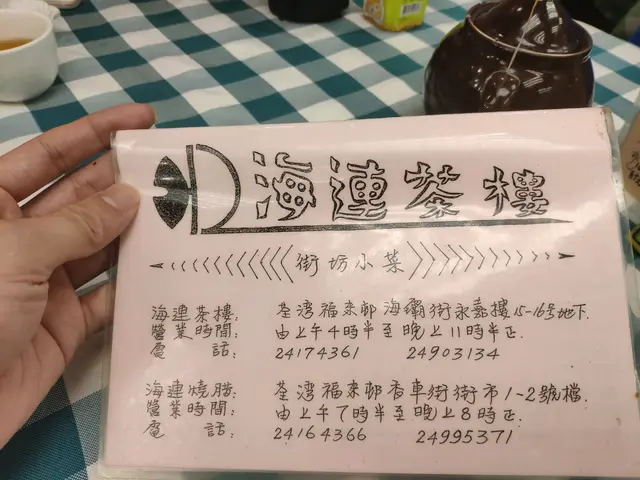 海連茶樓
街坊小菜
海連茶樓: 荃湾福來邨海霸街永嘉樓15-16号地下.
營業時間: 由上午4時半至晚上11時半正.
電話: 24174361 24903134
海連燒腊: 荃湾福來邨香車街街市1-2號檔.
營業時間: 由上午7時半至晚上8時正.
電話: 24164366 24995371